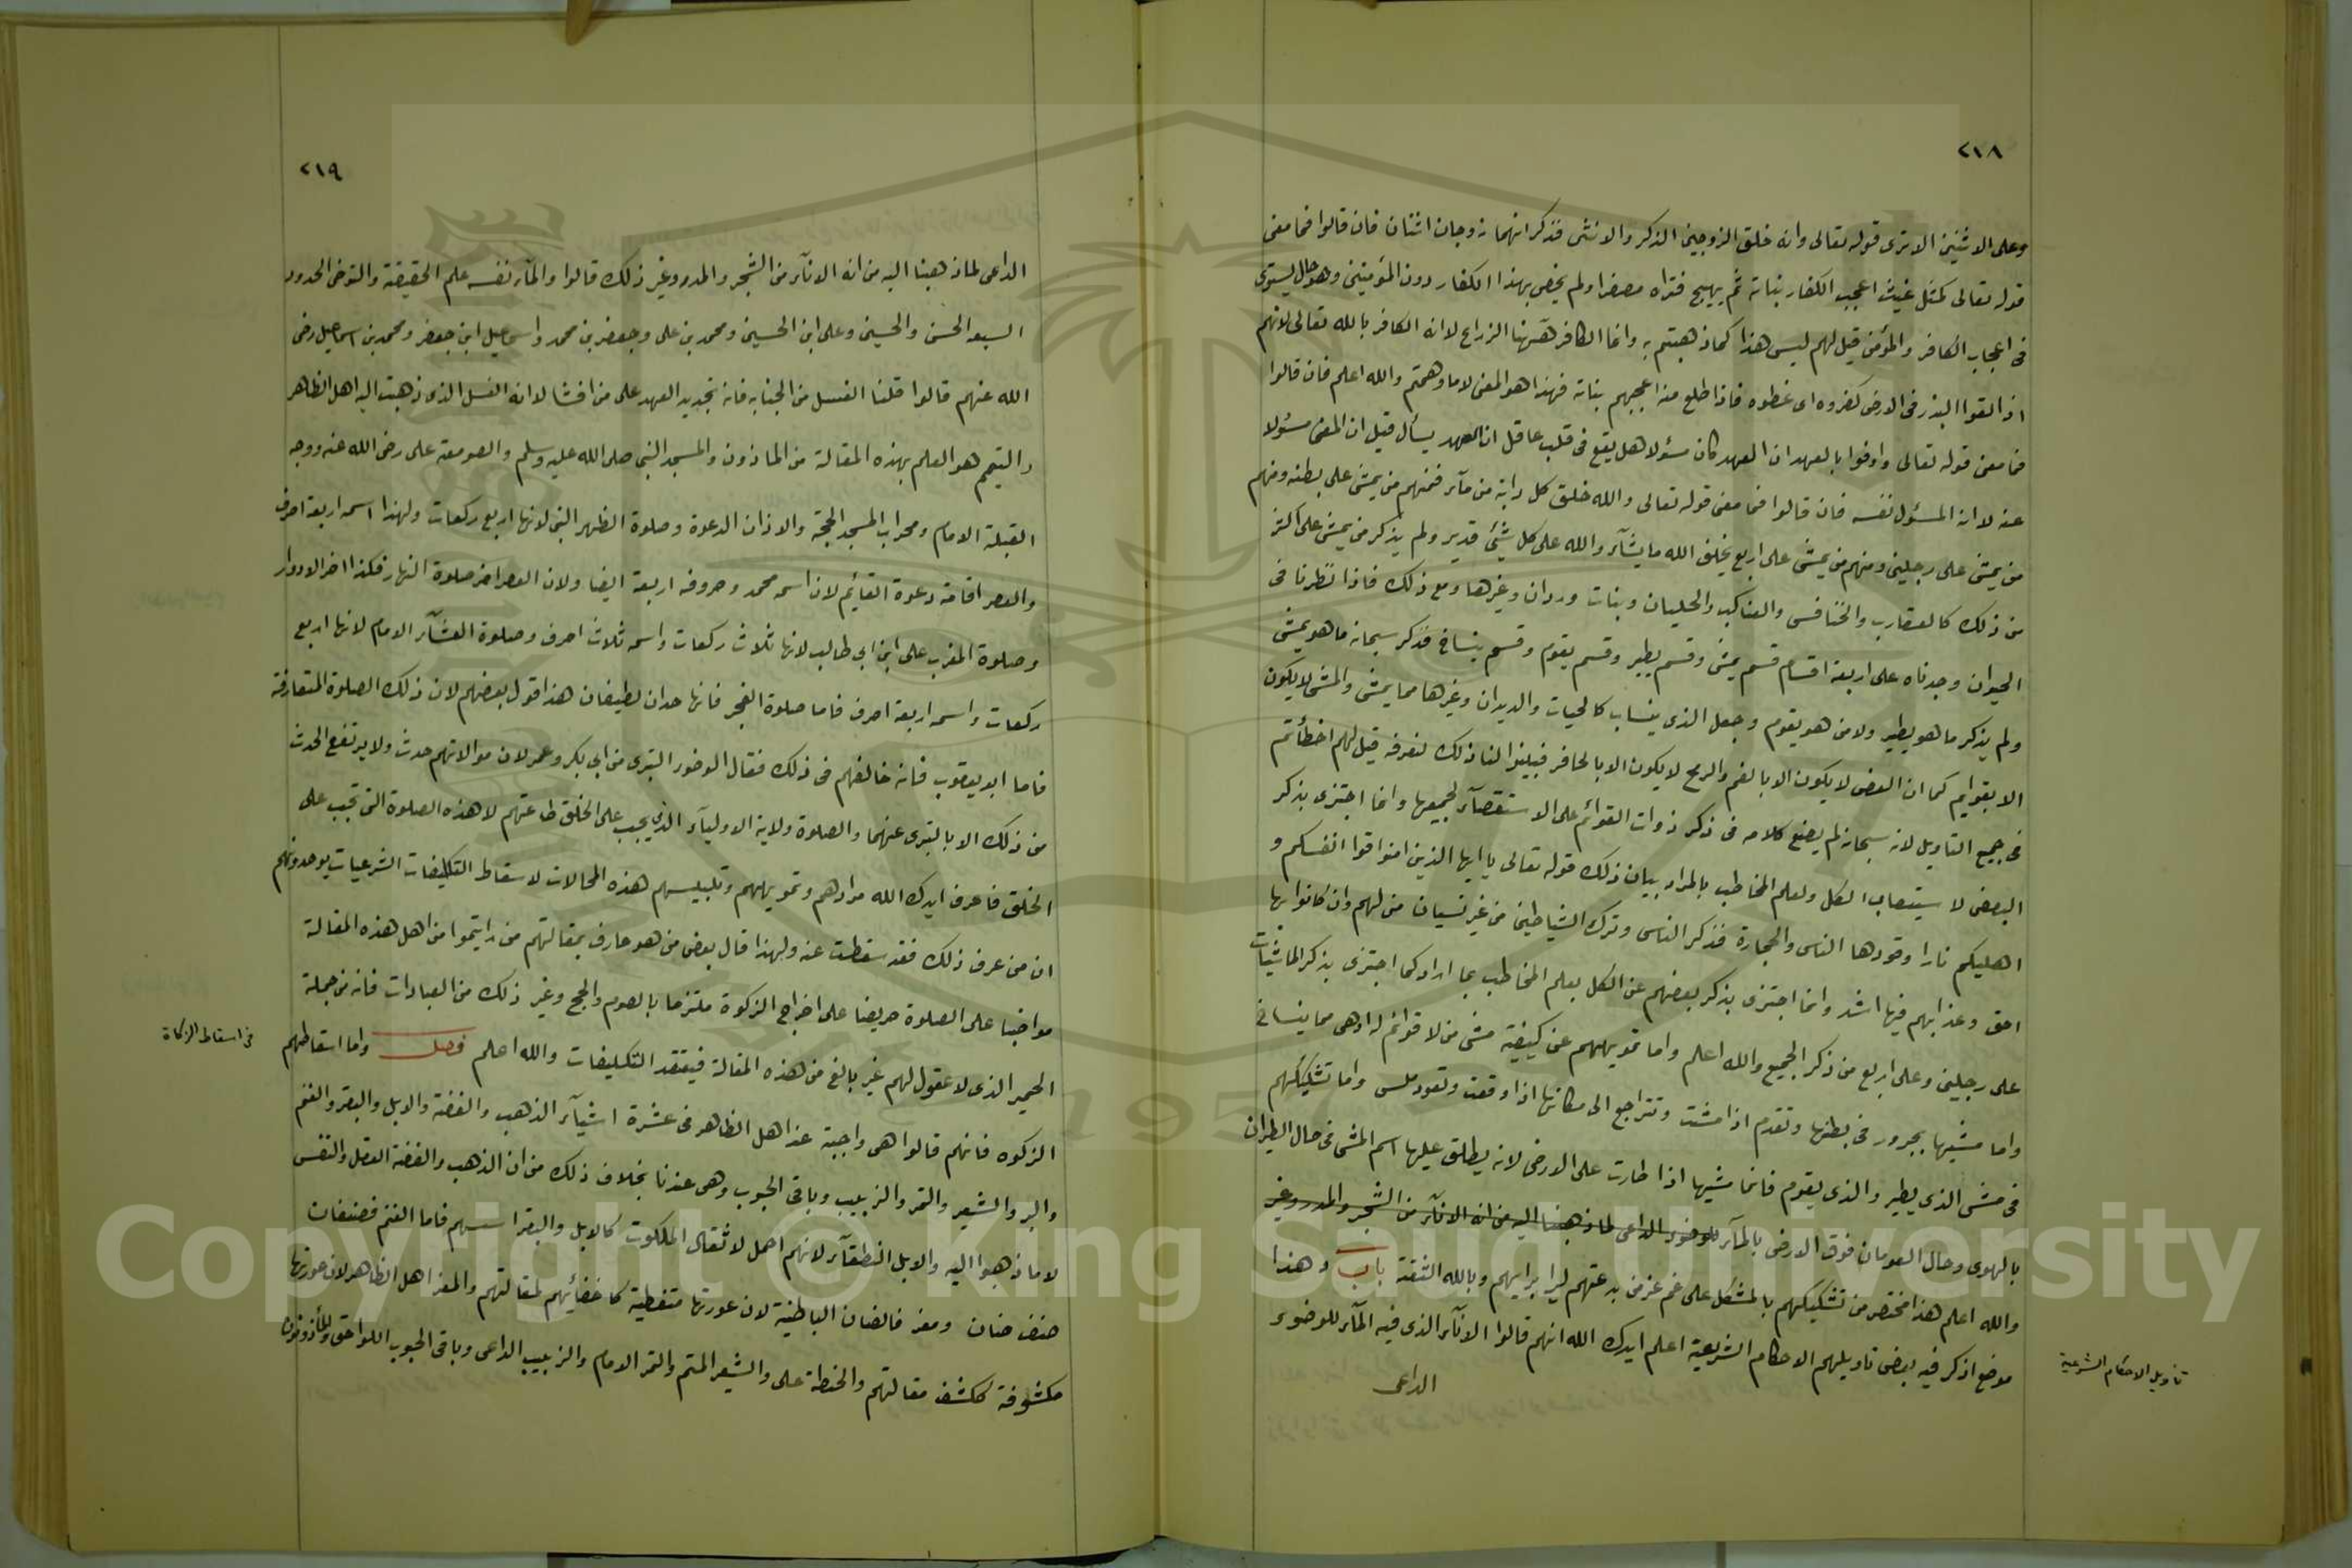 ٢١٨
وعلى الاثنين الا ترى قوله تعالى وانه خلق الزوجين الذكر والانثى فذكر انهما زوجان اثنان فان قالوا فما معنى
قوله تعالى كمثل غيث اعجب الكفار نباته ثم يهيج فتراه مصفرا ولم يخص بهذا الكفار دون المؤمنين وهو حال يستوى
فى اعجاب الكافر والمؤمن قيل لهم ليس هذا كما ذهبتم به وانما الكافر ههنا الزراع لانه الكافر بالله تعالى لانهم
اذا القوا البذر فى الارض كفروه اى غطوه فاذا طلع منه اعجبهم نباته فهذا هو المعنى لا ما وهمتم والله اعلم فان قالوا
فما معنى قوله تعالى واوفوا بالعهد ان العهد كان مسئولا هل يقع فى قلب عاقل ان العهد يسأل قيل ان المعنى مسئولا
عنه لا انه المسئول نفسه فان قالوا فما معنى قوله تعالى والله خلق كل دابة من مآء فمنهم من يمشى على بطنه ومنهم
من يمشى على رجلين ومنهم من يمشى على اربع يخلق الله ما يشآء والله على كل شيئ قدير ولم يذكر من يمشى على اكثر
من ذلك كالعقارب والخنافس والعناكب والحليان وبنات وردان وغيرها ومع ذلك فاذا نظرنا فى
الحيوان وجدناه على اربعة اقسام قسم يمشى وقسم يطير وقسم يقوم وقسم ينساخ فذكر سبحانه ما هو يمشى
ولم يذكر ما هو يطير ولا من هو يقوم وجعل الذى ينساب كالحيات والديدان وغيرها مما يمشى والمشى لا يكون
الا بقوايم كما ان العض لا يكون الا بالفم والرمح لا يكون الا بالحافر فبينوا لنا ذلك لنعرفه قيل لهم اخطأتم
فى جميع التاويل لانه سبحانه لم يضع كلامه فى ذكر ذوات القوائم على الاستقصآء لجميعها وانما اجتزى بذكر
البعض لا ستيعاب الكل ولعلم المخاطب بالمراد بيان ذلك قوله تعالى يا ايها الذين امنوا قوا انفسكم و
اهليكم نارا وقودها الناس والحجارة فذكر الناس وترك الشياطين من غير نسيان من لهم وان كانوا بها
احق وعذابهم فيها اشد وانما اجتزى بذكر بعضهم عن الكل بعلم المخاطب بما اراد كما اجتزى بذكر الماشيات
على رجلين وعلى اربع من ذكر الجميع والله اعلم واما تمويههم عن كيفية مشى من لا قوائم له اوهى مما ينساخ
واما مشيها بجرور فى بطنها وتقدم اذا مشت وتتراجع الى مكانها اذا وقعت وتعود ملس واما تشكيكهم
فى مشى الذى يطير والذى يقوم فانما مشيها اذا طارت على الارض لانه يطلق عليها اسم المشى فى حال الطيران
بالهوى وحال العومان فوق الارض بالمآء للوضوء الداعى لما ذهبنا اليه من انه الانآء من الشجر والمدر وغير
والله اعلم هذا مختصر من تشكيكهم بالمشكل على غم غر من بدعتهم ليرا برايهم وبالله الثقة باب وهذا
موضع اذكر فيه بعض تاويلهم الاحكام الشرعية اعلم ايدك الله انهم قالوا الانآء الذى فيه المآء للوضوء
الداعى
تاويل الاحكام الشرعية
٢١٩
الداعى لما ذهبنا اليه من انه الانآء من الشجر والمدر وغير ذلك قالوا والمآء نفسه علم الحقيقة والتوضى الحدود
السبعه الحسن والحسين وعلى ابن الحسين ومحمد بن على وجعفر بن محمد واسماعيل ابن جعفر ومحمد بن اسماعيل رضى
الله عنهم قالوا قلنا الغسل من الجنابه فانه تجديد العهد على من افشا لا انه الغسل الذى ذهبت اليه اهل الظاهر
والتيمم هو العلم بهذه المقالة من الماذون والمسجد النبى صلى الله عليه وسلم والصومعة على رضى الله عنه ووجه
القبلة الامام ومحراب المسجد الحجة والاذان الدعوة وصلوة الظهر النبى لانها اربع ركعات ولهذا اسمه اربعة احرف
والعصر اقامة دعوة القائيم لان اسمه محمد وحروفه اربعة ايضا ولان العصر اخر صلوة النهار فكذا اخر الادوار
وصلوة المغرب على ابن ابى طالب لانها ثلاث ركعات واسمه ثلاث احرف وصلوة العشآء الامام لانها اربع
ركعات واسمه اربعة احرف فاما صلوة الفجر فانها حدان لطيفان هذا قول بعضهم لان ذلك الصلوة المتعارفة
فاما ابو يعقوب فانه خالفهم فى ذلك فقال الوضوء التبرى من ابى بكر وعمر لان موالاتهم حدث ولا يرتفع الحدث
من ذلك الا بالتبرى عنهما والصلوة ولاية الاوليآء الذى يجب على الخلق طاعتهم لا هذه الصلوة التى تجب على
الخلق فاعرف ايدك الله مرادهم وتمويههم وتلبيسهم هذه المحالات لاسقاط التكليفات الشرعيات يوهمونهم
ان من عرف ذلك فقد سقطت عنه ولهذا قال بعض من هو عارف بمقالتهم من رايتموا من اهل هذه المقالة
مواضبا على الصلوة حريصا على اخراج الزكوة ملتزما بالصوم والحج وغير ذلك من العبادات فانه من جملة
الحمير الذى لا عقول لهم غير بالغ من هذه المقالة فيفتقد التكليفات والله اعلم فصل واما اسقاطهم
الزكوه فانهم قالوا هى واجبة عند اهل الظاهر فى عشرة اشيآء الذهب والفضة والابل والبقر والغنم
والبر والشعير والتمر والزبيب وباقى الحبوب وهى عندنا بخلاف ذلك من ان الذهب والفضة العقل والنفس
لا ما ذهبوا اليه والابل النطقآء لانهم احمل لاثقال الملكوت كالابل والبقر اسسهم فاما الغنم فصنفان
صنف ضان ومعز فالضان الباطنية لان عورتها متغطية كاخفائهم لمقالتهم والمعز اهل الظاهر لان عورتها
مكشوفة ككشف مقالتهم والحنطة على والشعير المتم والتمر الامام والزبيب الداعى وباقى الحبوب اللواحق والمأذونون
فى اسقاط الزكاة
Copyright © King Saud University
1957